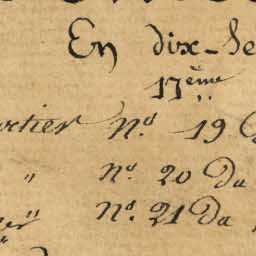 En dix-se
17ème
rtier No. 19
" No. 20 Du
" No. 21 Du